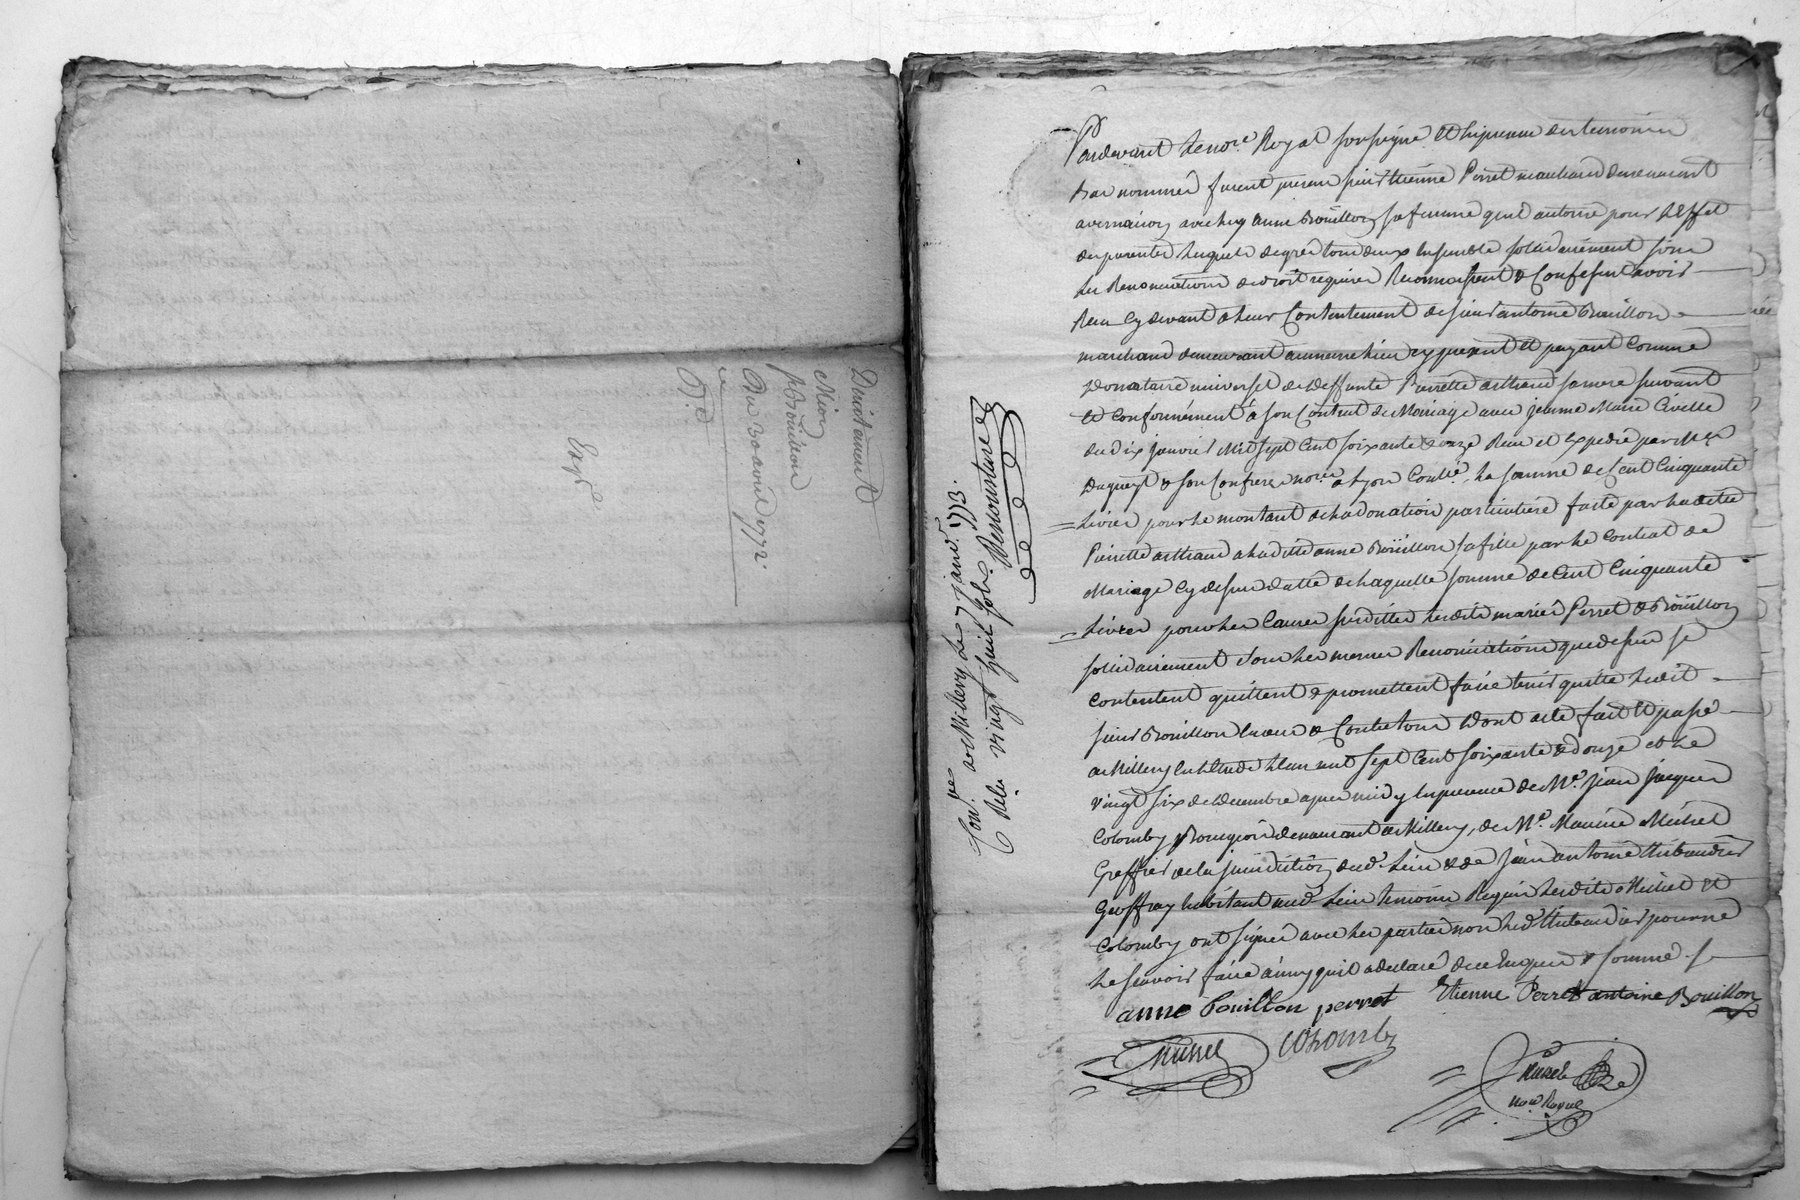 Quittancement
Mion
p. Bouillon
Du 30 avril 1772
Exp.
Pardevant le nore. Royal soussigné Et En presence des temoins
bas nommés furent presens sieur Etienne Perret marchand demeurant
a vernaison avec sieur anne Bouillon sa femme qu'il autorise pour l'Effet
des presentes lesquels de gré tous deux Ensemble sollidairement sous
les Renonciations de droit requises Reconnoissent & Confessent avoir
Reçu Cy devant a leur Contentement de sieur antoine Bouillon
marchand demeurant au meme lieu cy present et payant Comme
Donataire universel de deffunte Pierrette arthaud sa mere suivant
et conformément a son Contrat de Mariage avec jeanne Marie Civette
du dix janvier Mil sept Cent soixante & onze Reçu et Expedié par Me
Dugueyt & son Confrere nores. a Lyon Contlé. la somme de Cent Cinquante
Livres pour le montant de la donation particuliere faite par la ditte
Pierrette arthaud a la ditte anne Boüillon sa fille par le Contrat de
Mariage Cy dessus datté de laquelle somme de Cent Cinquante
Livres pour les Causes susdittes lesdits mariés Perret & Boüillon
sollidairement sous les memes Renonciations que dessus se
Contentent quittent & promettent faire tenir quitte ledit
sieur Bouillon Envers & Contre tous Dont acte fait Et passé
a Millery En l'Etude L'an mil sept Cent soixante & douze et le
vingt six decembre apres midy En presence de Me. jean jacques
Colomby Bourgeois demeurant a Millery, de Me. Maurice Michel
Greffier de la jurisdiction dud. Lieu & de jean antoine Thibaudier
Geoffray habitant aud. Lieu temoins Requis lesdits Michel et
Colomby ont signé avec les parties non led. Thibaudier pour ne
le scavoir faire ainsy qu'il a declaré de ce Enquis & sommé
anne Bouillon perret Etienne Perret antoine Bouillon
Michel Colomby
nore Royal
Conlé. a Millery Le 7 janv. 1773.
Reçu vingt huit sols. Venounturier